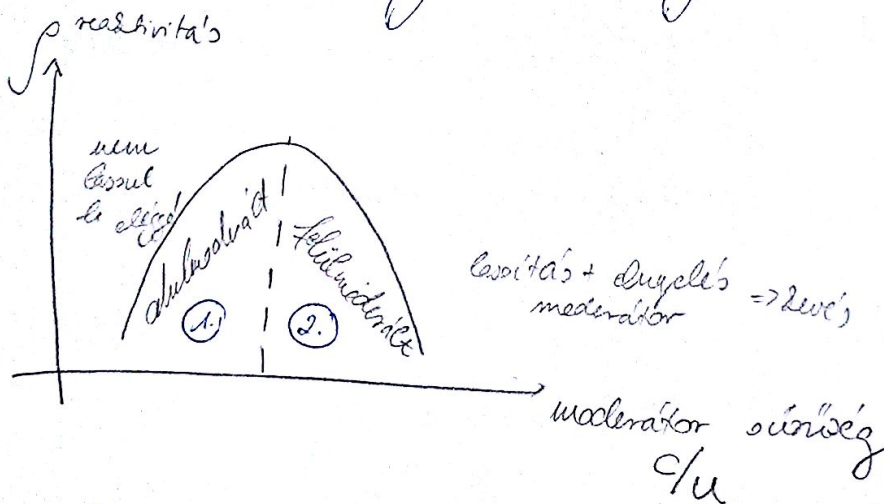 ρ reaktivitás
nem
lassul
le eléggé
alulmoderált
felülmoderált
1.
2.
lassítás + elnyelés => kevés
moderátor
moderátor sűrűség
C/U